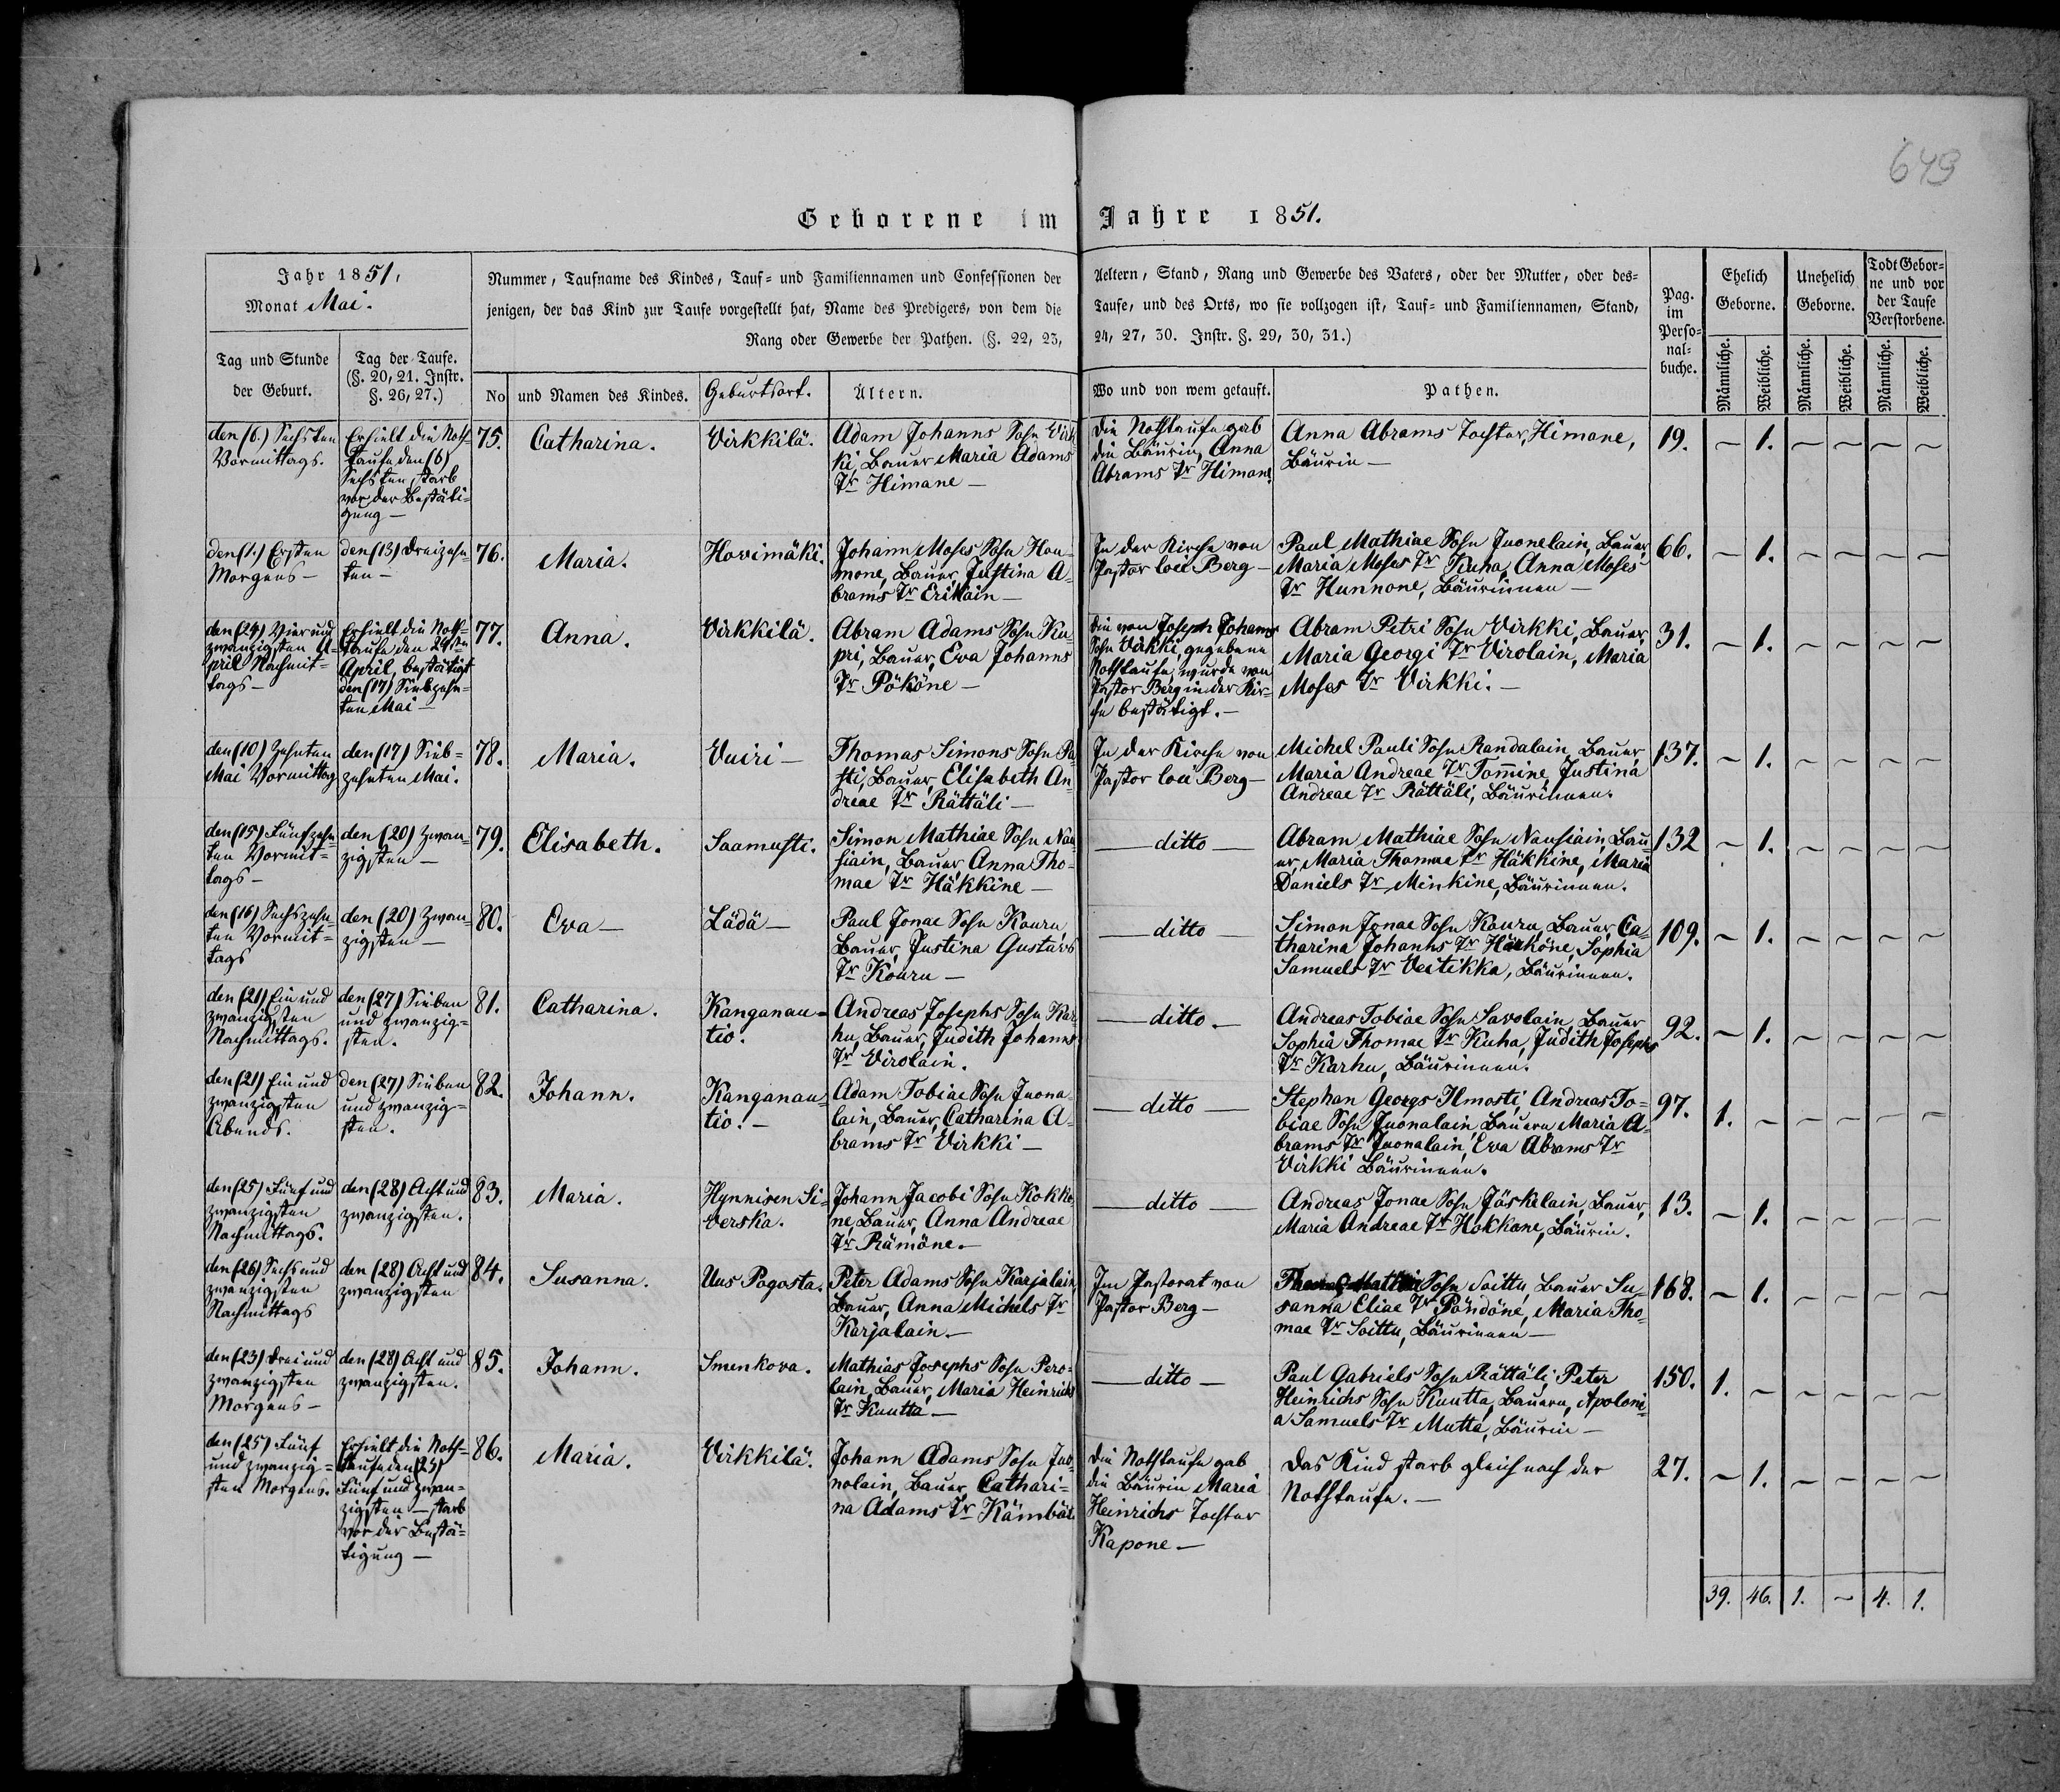 649
Geborene im Jahre 1851.
Jahr 1851,
Monat Mai.
Nummer, Taufname des Kindes, Tauf- und Familiennamen und Confessionen der Aeltern, Stand, Rang und Gewerbe des Vaters, oder der Mutter, oder des-
jenigen, der das Kind zur Taufe vorgestellt hat, Name des Predigers, von dem die Taufe, und des Orts, wo sie vollzogen ist, Tauf- und Familiennamen, Stand,
Rang oder Gewerbe der Pathen. (§. 22, 23, 24, 27, 30. Instr. §. 29, 30, 31.)
Pag.
im
Perso-
nal-
buche.
Ehelich
Geborne.
Unehelich
Geborne.
Todt Gebor-
ne und vor
der Taufe
Verstorbene.
Tag und Stunde
der Geburt.
Tag der Taufe.
(§. 20, 21. Instr.
§. 26, 27.)
No und Namen des Kindes.
Geburtsort.
Ältern.
Wo und von wem getauft.
Pathen.
Männliche.
Weibliche.
Männliche.
Weibliche.
Männliche.
Weibliche.
den (6.) Sechsten
Vormittags.
Erhielt die Noth-
taufe den (6)
Sechsten starb
vor der Bestäti-
gung —
75.
Catharina.
Virkkilä.
Adam Johanns Sohn Virk
ki, Bauer Maria Adams
Tr Himane —
Die Nothtaufe gab
die Bäurin, Anna
Abrams Tr Himane
Anna Abrams Tochter, Himane,
Bäurin —
19. – 1. – – – –
den (1.) Ersten
Morgens —
den (13) Dreizehn-
ten —
76.
Maria.
Hovimäki.
Johann Moses Sohn Hou-
mone, Bauer, Justina A-
brams Tr Erikäin —
In der Kirche von
Pastor loci Berg —
Paul Mathiae Sohn Juonelain, Bauer,
Maria Moses Tr Kuha, Anna Moses
Tr Hunnone, Bäurinnen —
66. – 1. – – – –
den (24) Vier und
zwanzigsten A-
pril Nachmit-
tags —
Erhielt die Noth-
taufe den 24sten
April, bestätigt
den (17) Siebzehn-
ten Mai —
77.
Anna.
Virkkilä.
Abram Adams Sohn Ku-
pri, Bauer, Eva Johanns
Tr Pököne —
Die von Joseph Johanns
Sohn Virkki, gegebene
Nothtaufe, wurde von
Pastor Berg in der Kir-
che bestätigt. —
Abram Petri Sohn Virkki, Bauer,
Maria Georgi Tr Virolain, Maria
Moses Tr Virkki. —
31. – 1. – – – –
den (10) Zehnten
Mai Vormittag
den (17) Sieb-
zehnten Mai.
78.
Maria.
Vuiri —
Thomas Simons Sohn Pa-
sti, Bauer, Elisabeth An-
dreae Tr Rättäli —
In der Kirche von
Pastor loci Berg —
Michel Pauli Sohn Randalain, Bauer,
Maria Andreae Tr Tommine, Justina
Andreae Tr Rättäli, Bäurinnen.
137. – 1. – – – –
den (15) Fünfzehn
ten Vormit-
tags —
den (20) Zwan-
zigsten —
79.
Elisabeth.
Saamusti.
Simon Mathiae Sohn Nau
siain, Bauer, Anna Tho-
mae Tr Häkkine —
— ditto —
Abram Mathiae Sohn Nausiain, Bau
er, Maria Thomae Tr Häkkine, Maria
Daniels Tr Minkine, Bäurinnen.
132 – 1. – – – –
den (16) Sechszehn
ten Vormit-
tags
den (20) Zwan-
zigsten —
80.
Eva —
Lädä —
Paul Jonae Sohn Kouru,
Bauer, Justina Gustavs
Tr Kouru —
— ditto —
Simon Jonae Sohn Kouru, Bauer, Ca-
tharina Johanns Tr Härköne, Sophia
Samuels Tr Veitikka, Bäurinnen.
109. – 1. – – – –
den (21) Ein und
zwanzigsten
Nachmittags.
den (27) Sieben
und zwanzig-
sten.
81.
Catharina.
Kanganau-
tio.
Andreas Josephs Sohn Kar
hu, Bauer, Judith Johanns
Tr Virolain.
— ditto. —
Andreas Tobiae Sohn Savolain, Bauer
Sophia Thomae Tr Kuha, Judith Josephs
Tr Karhu, Bäurinnen.
92. – 1. – – – –
den (21) Ein und
zwanzigsten
Abends.
den (27) Sieben
und zwanzig-
sten.
82.
Johann.
Kanganau-
tio. —
Adam Tobiae Sohn Juona-
lain, Bauer, Catharina A-
brams Tr Virkki —
— ditto —
Stephan Georgs Ilmosti, Andreas To-
biae Sohn Juonalain, Bauern Maria A-
brams Tr Juonalain, Eva Abrams Tr
Virkki Bäurinnen.
97. 1. – – – – –
den (25) Fünf und
zwanzigsten
Nachmittags.
den (28) Acht und
zwanzigsten.
83.
Maria.
Hynnisen Si-
verska.
Johann Jacobi Sohn Kokko
ne, Bauer, Anna Andreae
Tr Rämöne. —
— ditto —
Andreas Jonae Sohn Jäskelain, Bauer,
Maria Andreae Tr Hokkane, Bäurin.
13. – 1. – – – –
den (26) Sechs und
zwanzigsten
Nachmittags
den (28) Acht und
zwanzigsten
84.
Susanna.
Uus Pogosta.
Peter Adams Sohn Karjalain,
Bauer, Anna Michels Tr
Karjalain. —
Im Pastorat von
Pastor Berg —
Sohn Soittu, Bauer Su-
sanna Eliae Tr Pöndöne, Maria Tho-
mae Tr Soittu, Bäurinnen —
168. – 1. – – – –
den (23) Drei und
zwanzigsten
Morgens —
den (28) Acht und
zwanzigsten.
85.
Johann.
Smenkova.
Mathias Josephs Sohn Pero-
lain, Bauer, Maria Heinrichs
Tr Kuutta —
— ditto —
Paul Gabriels Sohn Rättäli, Peter
Heinrichs Sohn Kuutta, Bauern, Apoloni-
a Samuels Tr Mutta, Bäurin —
150. 1. – – – – –
den (25) Fünf
und zwanzig-
sten Morgens.
Erhielt die Noth-
taufe den (25)
Fünf und zwan-
zigsten — starb
vor der Bestä-
tigung —
86.
Maria.
Virkkilä.
Johann Adams Sohn Juo-
nolain, Bauer, Cathari-
na Adams Tr
Die Nothtaufe gab
die Bäurin Maria
Heinrichs Tochter
Kapone —
Das Kind starb gleich nach der
Nothtaufe. —
27. – 1. – – – –
39. 46. 1. – 4. 1.